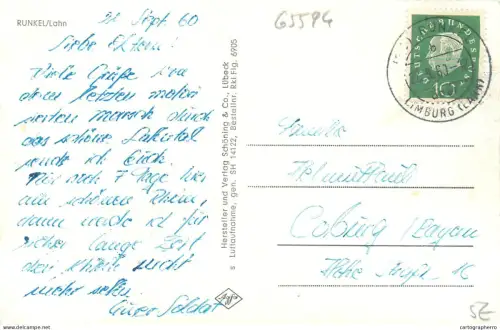 RUNKEL/Lahn
21. Sept. 60
Liebe Eltern!
Viele Grüße von
dem letzten
marsch durch
das schöne Lahntal
sende ich Euch.
Nur noch 7 Tage hier
am schönen Rhein,
dann werde ich für
lange Zeit
den Rhein nicht
mehr sehen.
Euer Soldat
Hersteller und Verlag Schöning & Co., Lübeck
s Luftaufnahme, gen. SH 14122, Bestellnr. Rkl.Flg. 6905
Agfa
65594
DEUTSCHE BUNDESPOST
10
LIMBURG (LAHN)
Familie
Helmut
Coburg / Bayern
Hohe
5E
© www.cartographero.com